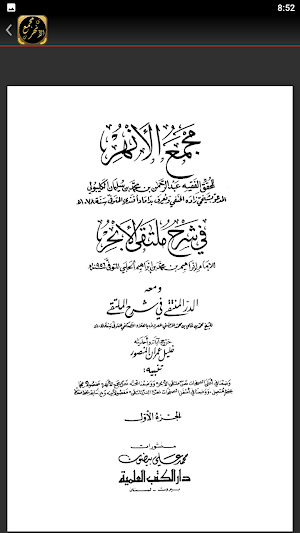 8:52
مجمع الأنهر
مجمع الأنهر
للمحقق الفقيه عبد الرحمن بن محمد بن سليمان الكليبولي
المدعو بشيخي زاده الحنفي ويعرف بداماد أفندي المتوفى سنة ١٠٧٨ هـ
في شرح ملتقى الأبحر
للإمام إبراهيم بن محمد بن إبراهيم الحلبي المتوفى ٩٥٦ هـ
ومعه
الدر المنتقى في شرح الملتقى
خرج آياته وأحاديثه
خليل عمران المنصور
تنبيه:
الجزء الأول
منشورات
محمد علي بيضون
دار الكتب العلمية
بيروت - لبنان